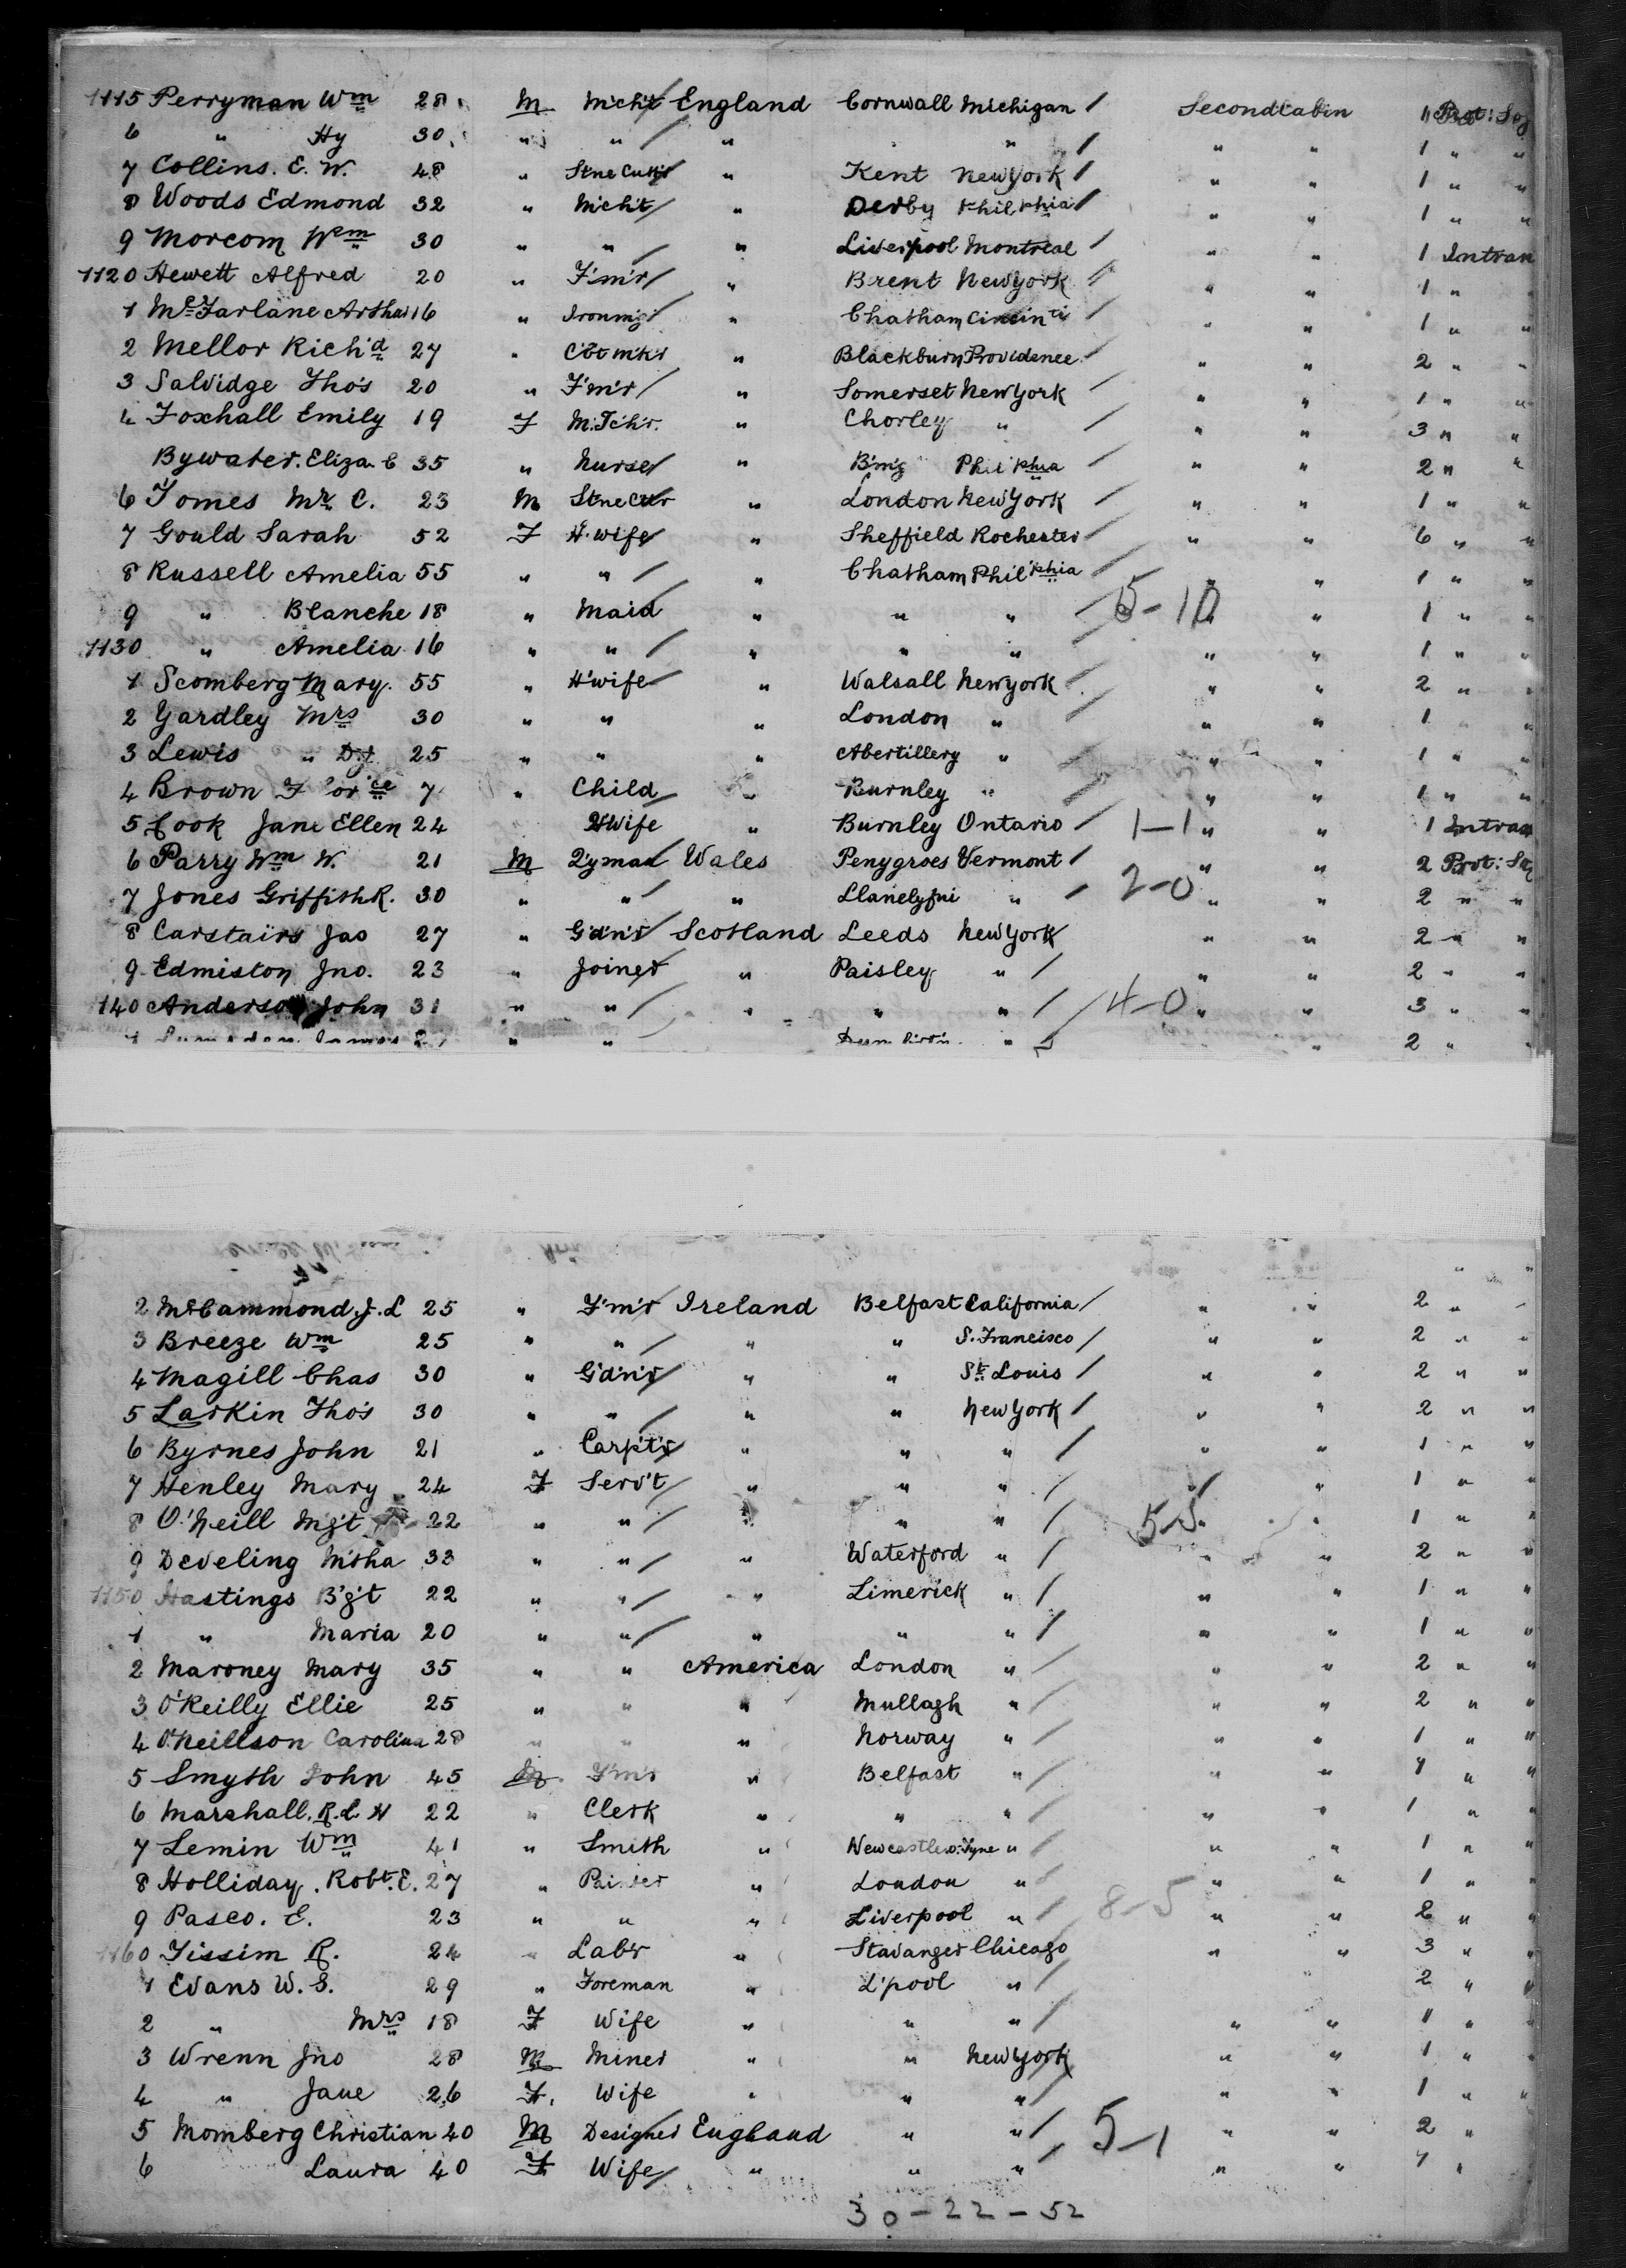 1115 Perryman Wm 28 M Mch't England Cornwall Michigan / Second Cabin 1 Prot: Soj
6 " Hy 30 " " / " " / " " 1 " "
7 Collins. E. W. 48 " Stne Cutt'r " Kent New York / " " 1 " "
8 Woods Edmond 32 " Mch't / " Derby Phil phia / " " 1 " "
9 Morcom Wm 30 " " / " Liverpool Montreal / " " 1 Intran
1120 Hewett Alfred 20 " F'm'r / " Brent New York / " " 1 " "
1 McFarlane Arthur 16 " Ironmg'r " Chatham Cincin'ti / " " 1 " "
2 Mellor Rich'd 27 " C'bt m'k'r " Blackburn Providence / " " 2 " "
3 Salvidge Tho's 20 " F'm'r / " Somerset New York / " " 1 " "
4 Foxhall Emily 19 F M. Tch'r. " Chorley " / " " 3 " "
Bywater. Eliza. C 35 " Nurse / " B'm'g Phil'phia / " " 2 " "
6 Tomes Mr. C. 23 M Stne Ctr " London New York / " " 1 " "
7 Gould Sarah 52 F H. wife / " Sheffield Rochester / " " 6 " "
8 Russell Amelia 55 " " / " Chatham Phil'phia / " " 1 " "
9 " Blanche 18 " Maid " " " / 5-10 " " 1 " "
1130 " Amelia 16 " " / " " " " " 1 " "
1 Scomberg Mary. 55 " H'wife " Walsall New York / " " 2 " "
2 Yardley Mrs 30 " " " London " / " " 1 " "
3 Lewis " D. J. 25 " " " Abertillery " / " " 1 " "
4 Brown Flor'ce 7 " Child / " Burnley " / " " 1 " "
5 Cook Jane Ellen 24 H Wife " Burnley Ontario / 1-1 " " 1 Intran
6 Parry Wm W. 21 M Q'yman Wales Penygroes Vermont / " " 2 Prot: Soj
7 Jones Griffith R. 30 " " / " Llanelyfni " / 2-0 " " 2 " "
8 Carstairs Jas 27 " G'd'n'r Scotland Leeds New York / " " 2 " "
9 Edmiston Jno. 23 " Joiner " Paisley " / " " 2 " "
1140 Anderson John 31 " " / " " " / 4-0 " " 3 " "
James " " " " 2 " "
" "
2 McCammond. J. L 25 " F'm'r Ireland Belfast California / " " 2 " "
3 Breeze Wm 25 " " / " " S. Francisco / " " 2 " "
4 Magill Chas 30 " G'd'n'r / " " St. Louis / " " 2 " "
5 Larkin Tho's 30 " " / " " New York / " " 2 " "
6 Byrnes John 21 " Carpt'r " " " / " " 1 " "
7 Henley Mary 24 F Serv't / " " " / " " 1 " "
8 O'Neill Mg't 22 " " / " " " / 5-5 " " 1 " "
9 Develing M'tha 33 " " / " Waterford " / " " 2 " "
1150 Hastings B'g't 22 " " / " Limerick " / " " 1 " "
1 " Maria 20 " " / " " " / " " 1 " "
2 Maroney Mary 35 " " America London " / " " 2 " "
3 O'Reilly Ellie 25 " " " Mullagh " / " " 2 " "
4 O'Neillson Carolina 28 " " " Norway " / " " 1 " "
5 Smyth John 45 M F'm'r " Belfast " / " " 1 " "
6 Marshall. R. L. H 22 " Clerk " " " / " " 1 " "
7 Lemin Wm 41 " Smith " Newcastle o. Tyne " / " " 1 " "
8 Holliday. Robt. E. 27 " Painter " London " / " " 1 " "
9 Pasco. E. 23 " " " Liverpool " / 8-5 " " 2 " "
1160 Tissim R. 24 " Lab'r " Stavanger Chicago " " 3 " "
1 Evans W. S. 29 " Foreman " L'pool " / 2 " "
2 " Mrs 18 F Wife " " " / " " 1 " "
3 Wrenn Jno 28 M Miner " " New York " " 1 " "
4 " Jane 26 F. Wife " " " / " " 1 " "
5 Momberg Christian 40 M Designer England " " / 5-1 " " 2 "
6 Laura 40 F Wife / " " " / " " 1 "
30-22-52